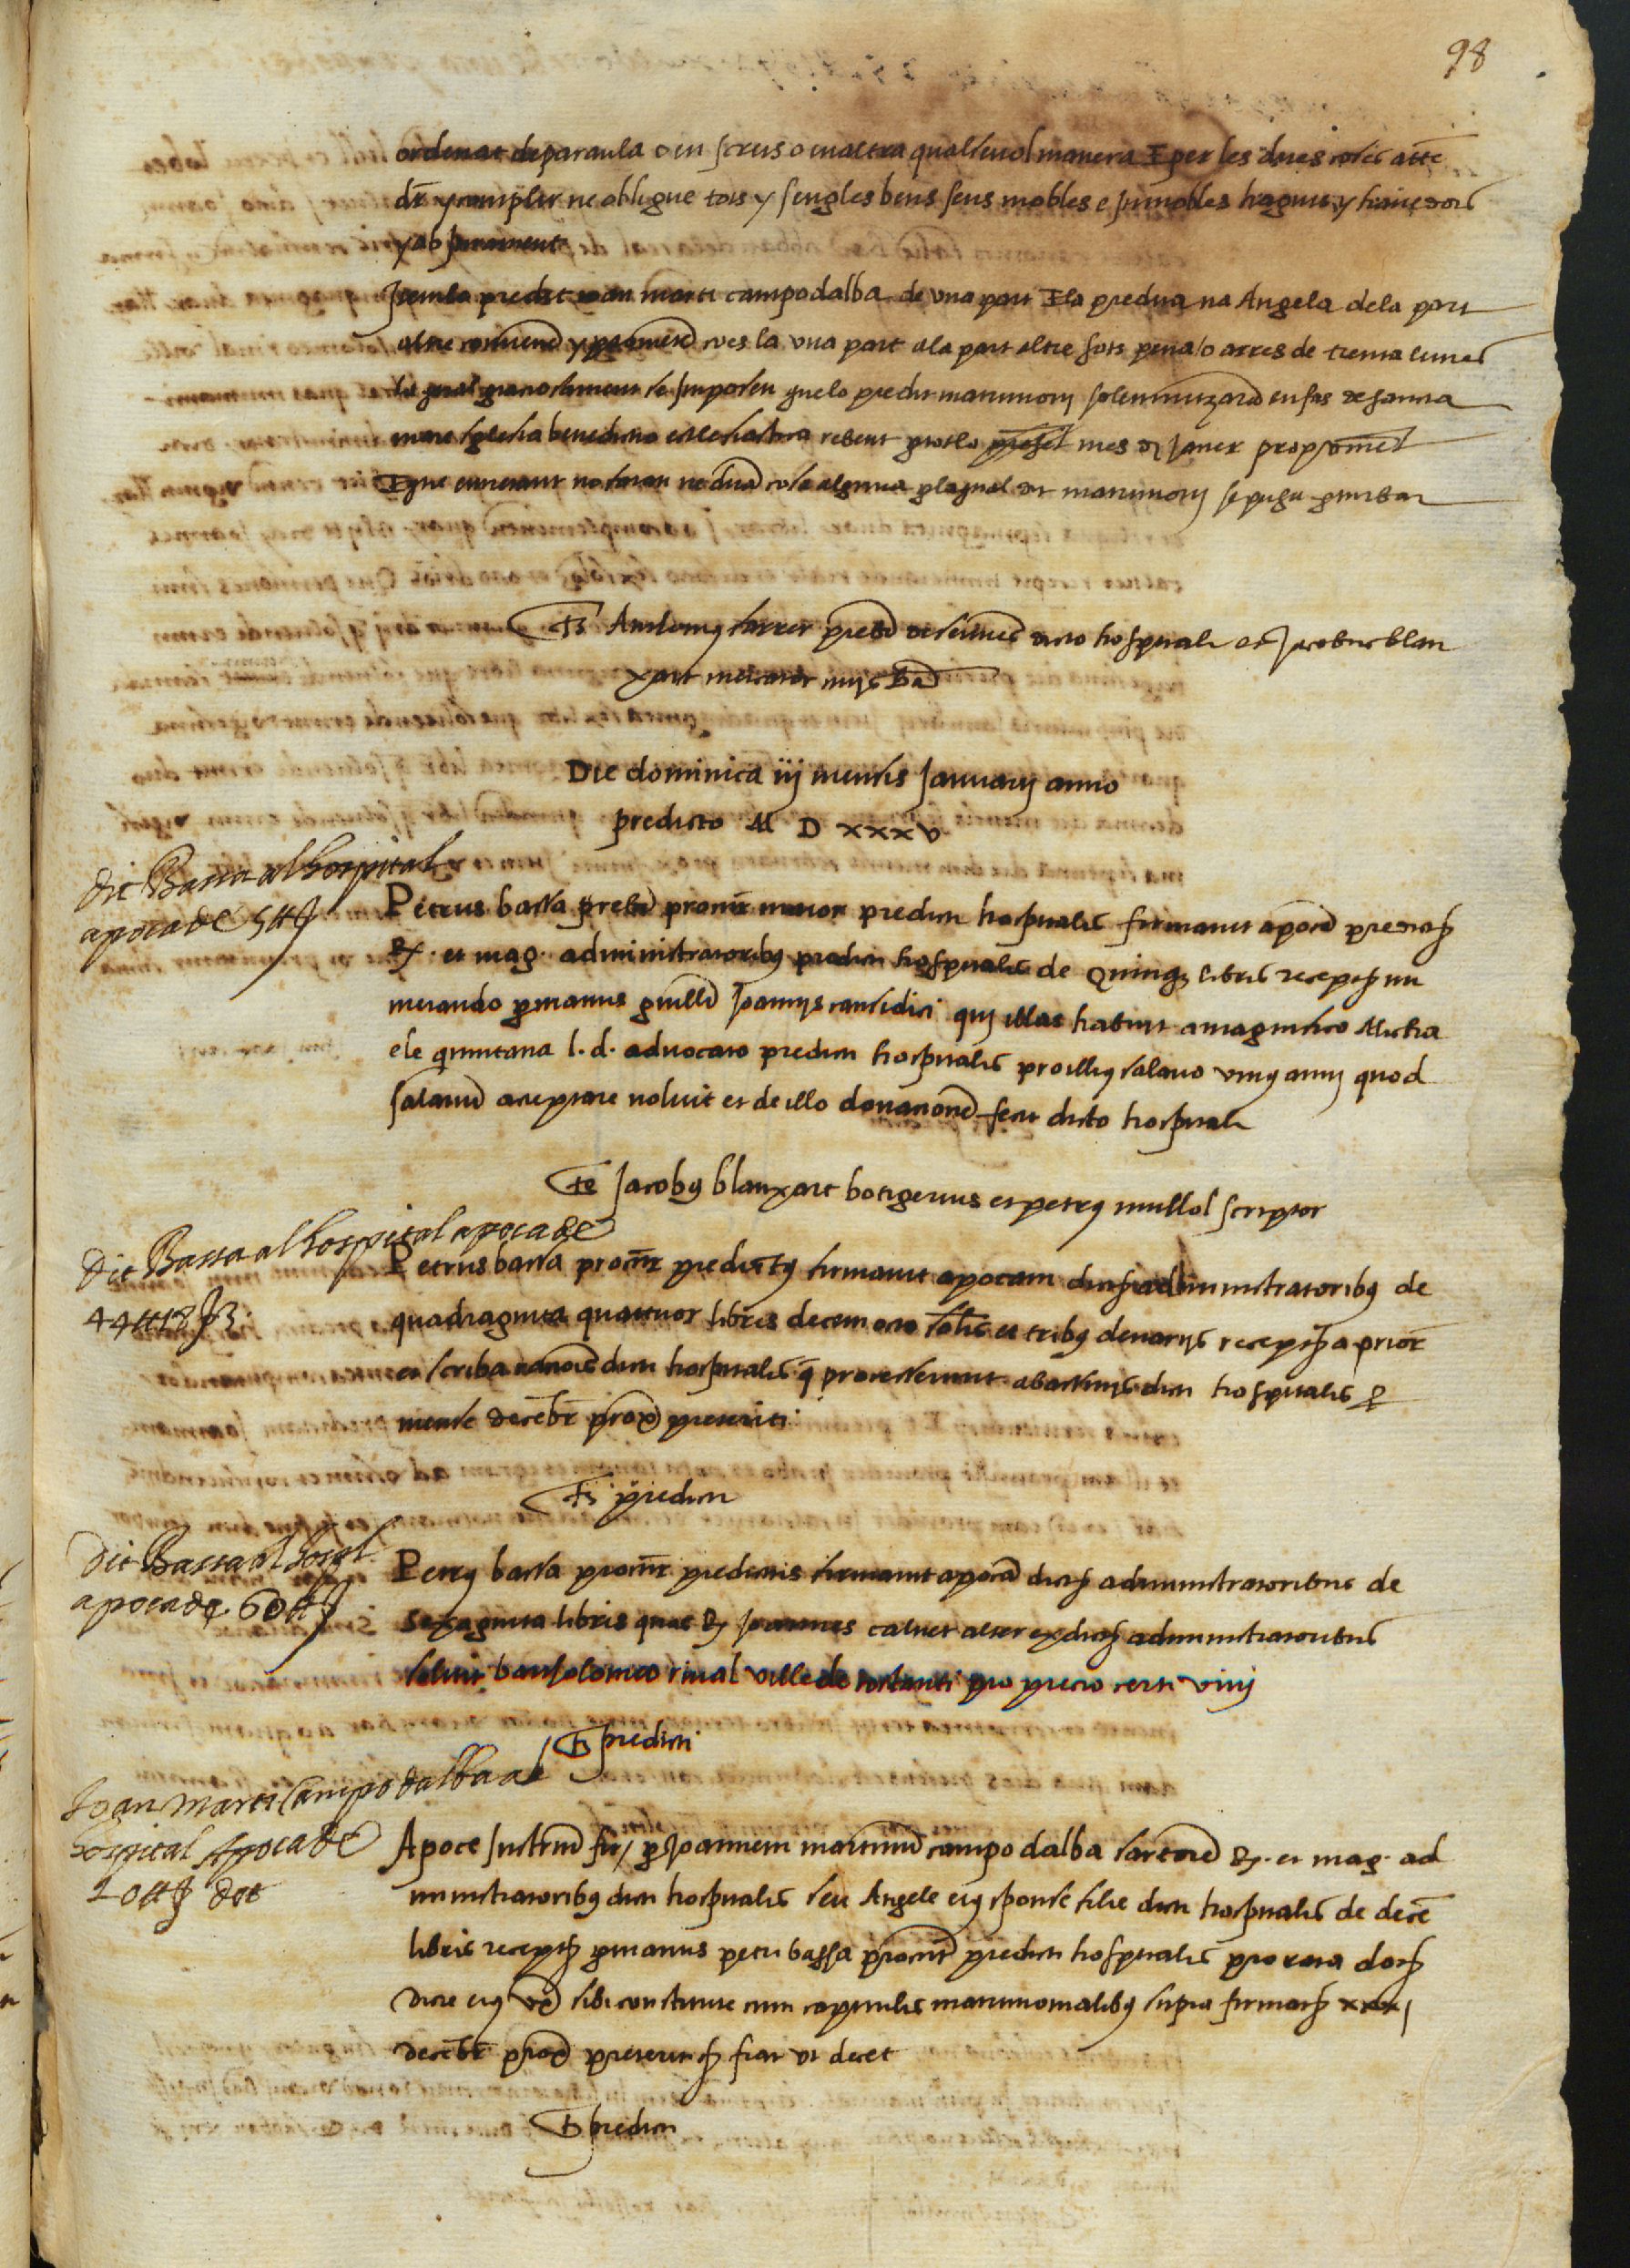 98
ordenat de paraula o en scrits o en altra qualsevol manera E per les dues coses atte
dr y complir ne obligue tots y sengles bens seus mobles e inmobles haguts y havedors
y ab jurament
Item lo predit Joan marti campodalba de una part E la predita na Angela dela part
altre convene y prometē ces la una part ala part altre sots pena/o arres de trenta liures
la qual graciosament se imposen quelo predit matrimoni solemnizarā en fas de sancta
mare sglesia benedictio ecclesiastica rebent per tot lo present mes d Janer prop
E que entretant no faran ne diran cosa alguna per la qual dit matrimoni se puga perturbar
Ts Anthonius ferrer prebr dicto hospitali et Jacobus blan
xart mercator civis Bar
Die dominica iij mensis Januarij anno
predicto M D xxxv
dit Bassa al hospital
apoca de 5 ℔
Petrus bassa prebr procurr maior predicti hospitalis firmavit apocā predictis
R. et mag. administratoribus predicti hospitalis de Quinque libris receptis nu
merando per manus guillmi Joannis causidici qui illas habuit a magnifico Micha
ele quintana l. d. advocato predicti hospitalis pro illius salario unius anni quod
salariū acceptare noluit et de illo donationē fecit dicto hospitali
Ts Jacobus blanxart botigerius et petrus mullol scriptor
Dit Bassa al hospital apoca de
44 ℔ 18 ẞ 3.
Petrus bassa procurr predictus firmavit apocam dictis administratoribus de
quadraginta quattuor libris decem octo solis et tribus denarijs receptis a priore
et scriba dicti hospitalis q̄ processerunt a bassinis dicti hospitalis per
mense decēbr prox preteriti
Ts predicti
Dit Bassa al hospl
apoca de 60 ℔
Petrus bassa procurr predictus firmavit apocā dictis administratoribus de
Sexaginta libris quas R Joannes calvet alter ex dictis administratoribus
solvit bartolomeo rival ville de pro precio certi vini
Ts predicti
Joan marti campo dalba al
hospital Apoca de
10 ℔ dot
Apoce Instrum fir/ per Joannem martinū campo dalba sartorē R. et mag. ad
ministratoribus dicti hospitalis seu Angele eius sponse filie dicti hospitalis de decē
libris receptis per manus petri bassa procurr predicti hospitalis pro rata dotis
dicte eius sibi constitute cum capitulis matrimonialibus supra firmatis xxxi
decēbr prox preteritis fiat ut decet
Ts predicti